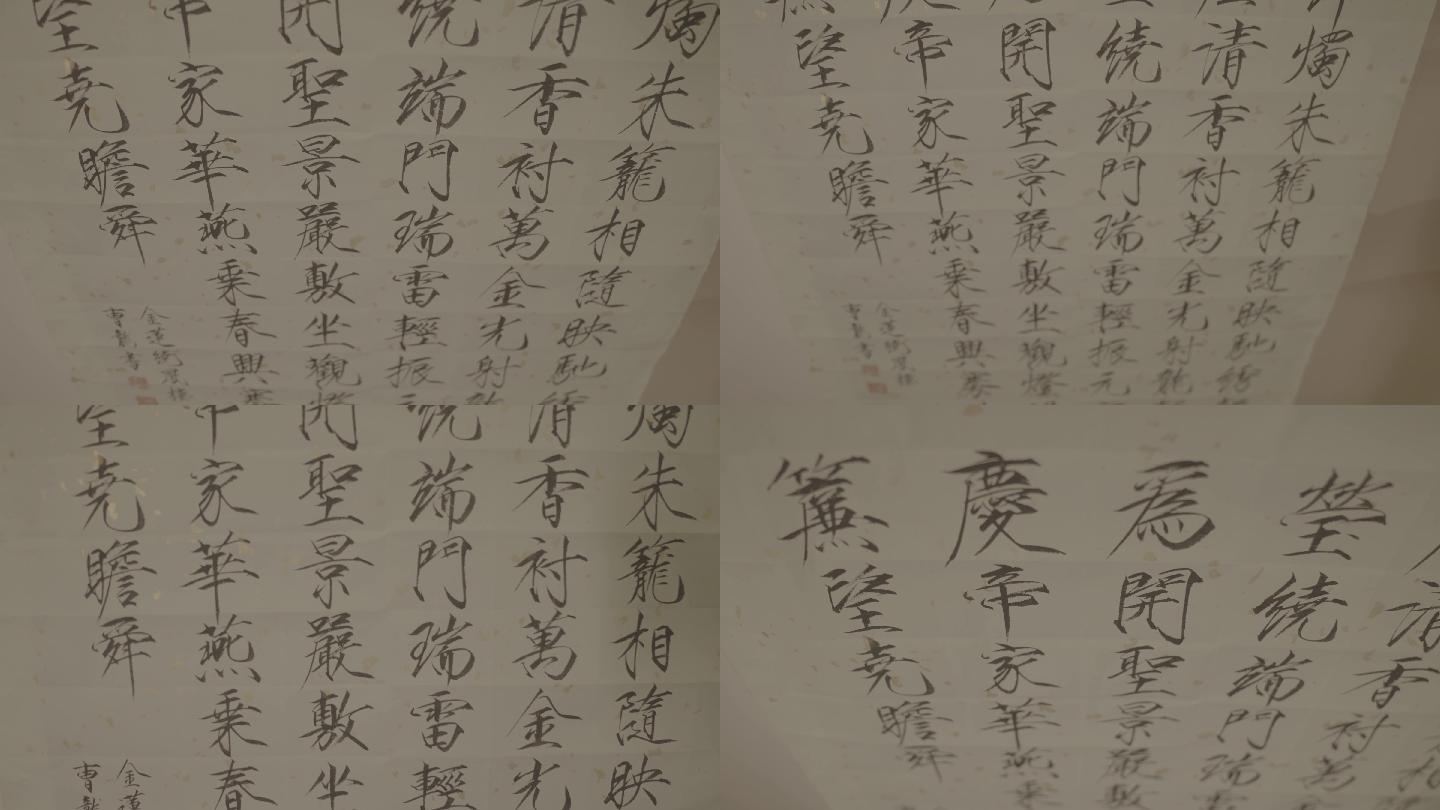 燭朱籠相隨映馳
清香衬萬金光射
繞端門瑞雷輕振
開聖景嚴敷坐觀燈
帝家華燕乘春興
望堯瞻舜
金蓮繞鳳樓
曹龍書
燭朱籠相隨映馳繡
清香衬萬金光射龍
繞端門瑞雷輕振元
開聖景嚴敷坐觀燈
帝家華燕乘春興搴
望堯瞻舜
金蓮繞鳳樓
曹龍書
燭朱籠相隨映
清香衬萬金光
繞端門瑞雷輕
開聖景嚴敷坐
帝家華燕乘春
望堯瞻舜
金蓮
曹龍
清香衬萬
瑩繞端門瑞
為開聖景嚴
慶帝家華燕乘
簾望堯瞻舜